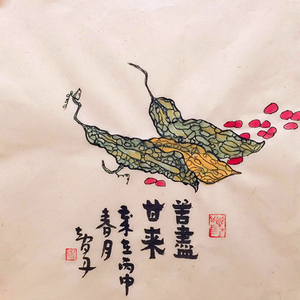 苦盡
甘来
歲在丙申
春月